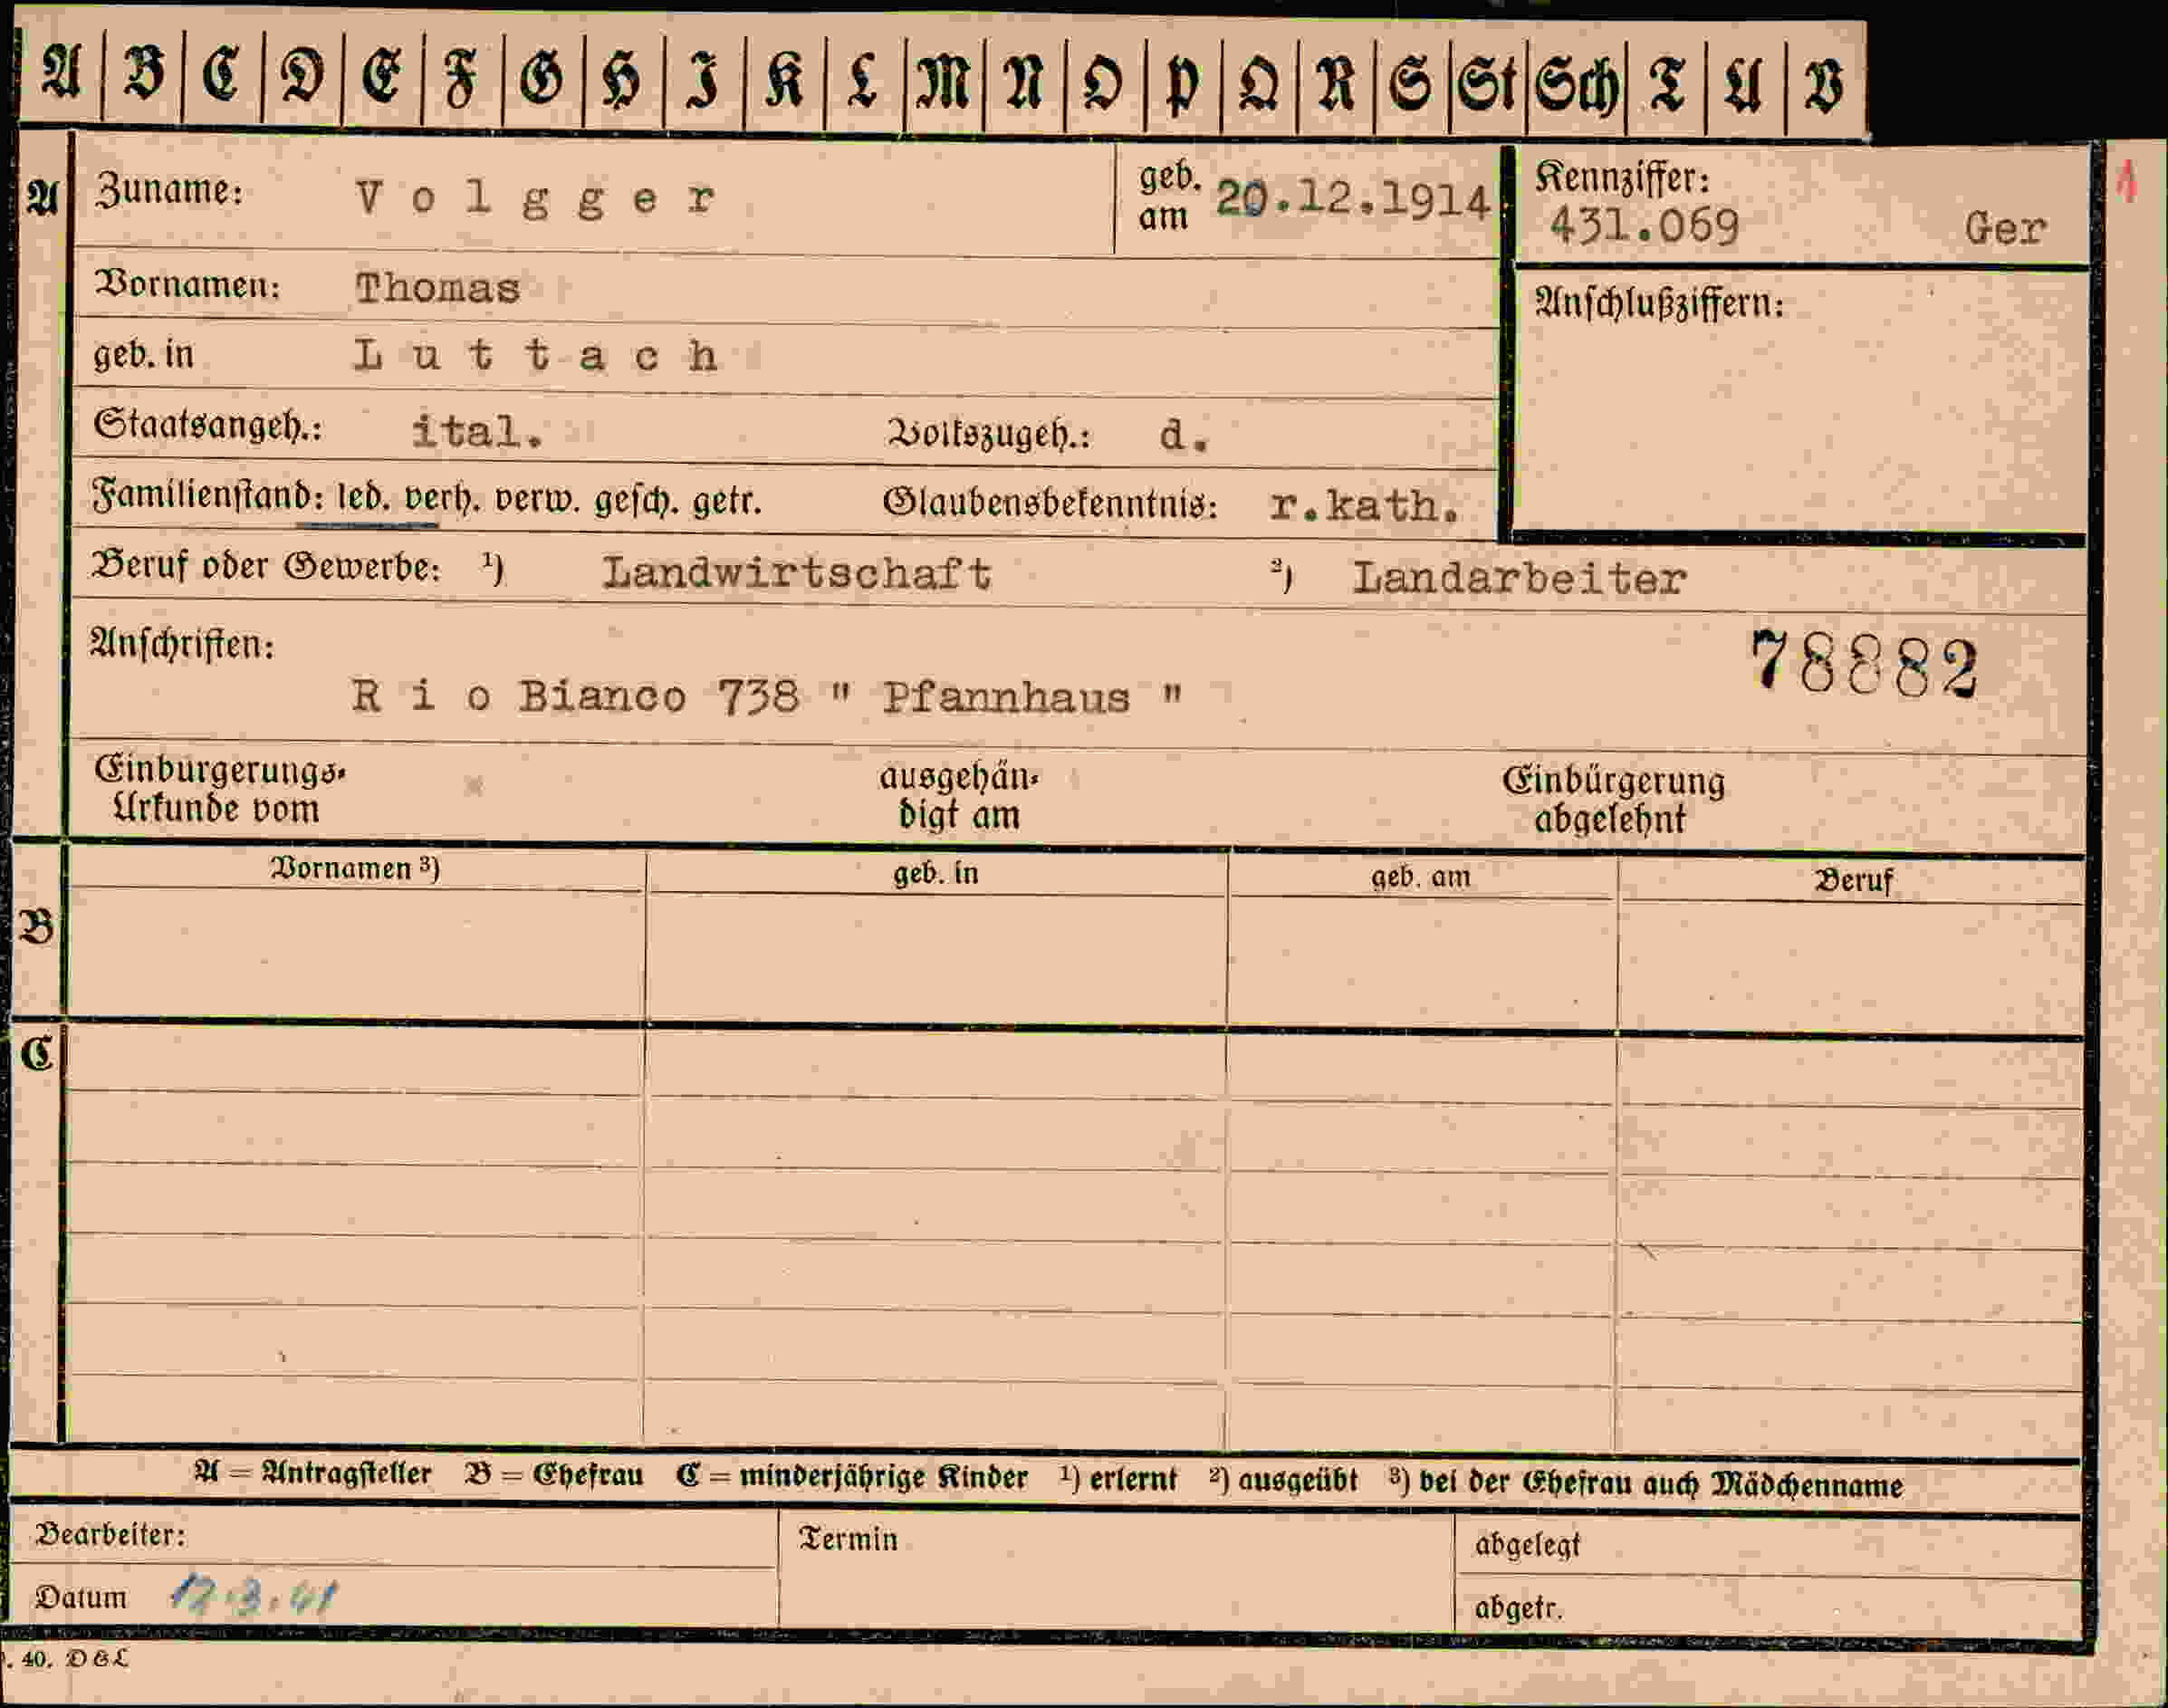 A B C D E F G H I K L M N O P Q R S St Sch T U V
A Zuname: Volgger geb. am 20.12.1914 Kennziffer: 431.069 Ger
Vornamen: Thomas Anschlußziffern:
geb. in Luttach
Staatsangeh.: ital. Volkszugeh.: d.
Familienstand: led. verh. verw. gesch. getr. Glaubensbekenntnis: r.kath.
Beruf oder Gewerbe: ¹) Landwirtschaft ²) Landarbeiter
Anschriften: 78882
Rio Bianco 738 " Pfannhaus "
Einbürgerungs- ausgehän- Einbürgerung
Urkunde vom digt am abgelehnt
Vornamen ³) geb. in geb. am Beruf
B
C
A = Antragsteller B = Ehefrau C = minderjährige Kinder ¹) erlernt ²) ausgeübt ³) bei der Ehefrau auch Mädchenname
Bearbeiter: Termin abgelegt
Datum 17.3.41 abgetr.
. 40. D&L